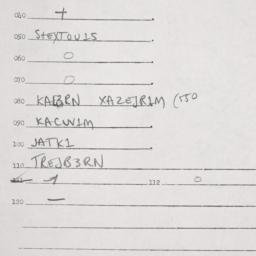 040 +
050 StEXTOU1S
060 0
070 0
080 KABRN XAZEJR1M (550
090 KACUV1M
100 JATK1
110 TREJB3RN
112 0
120 —